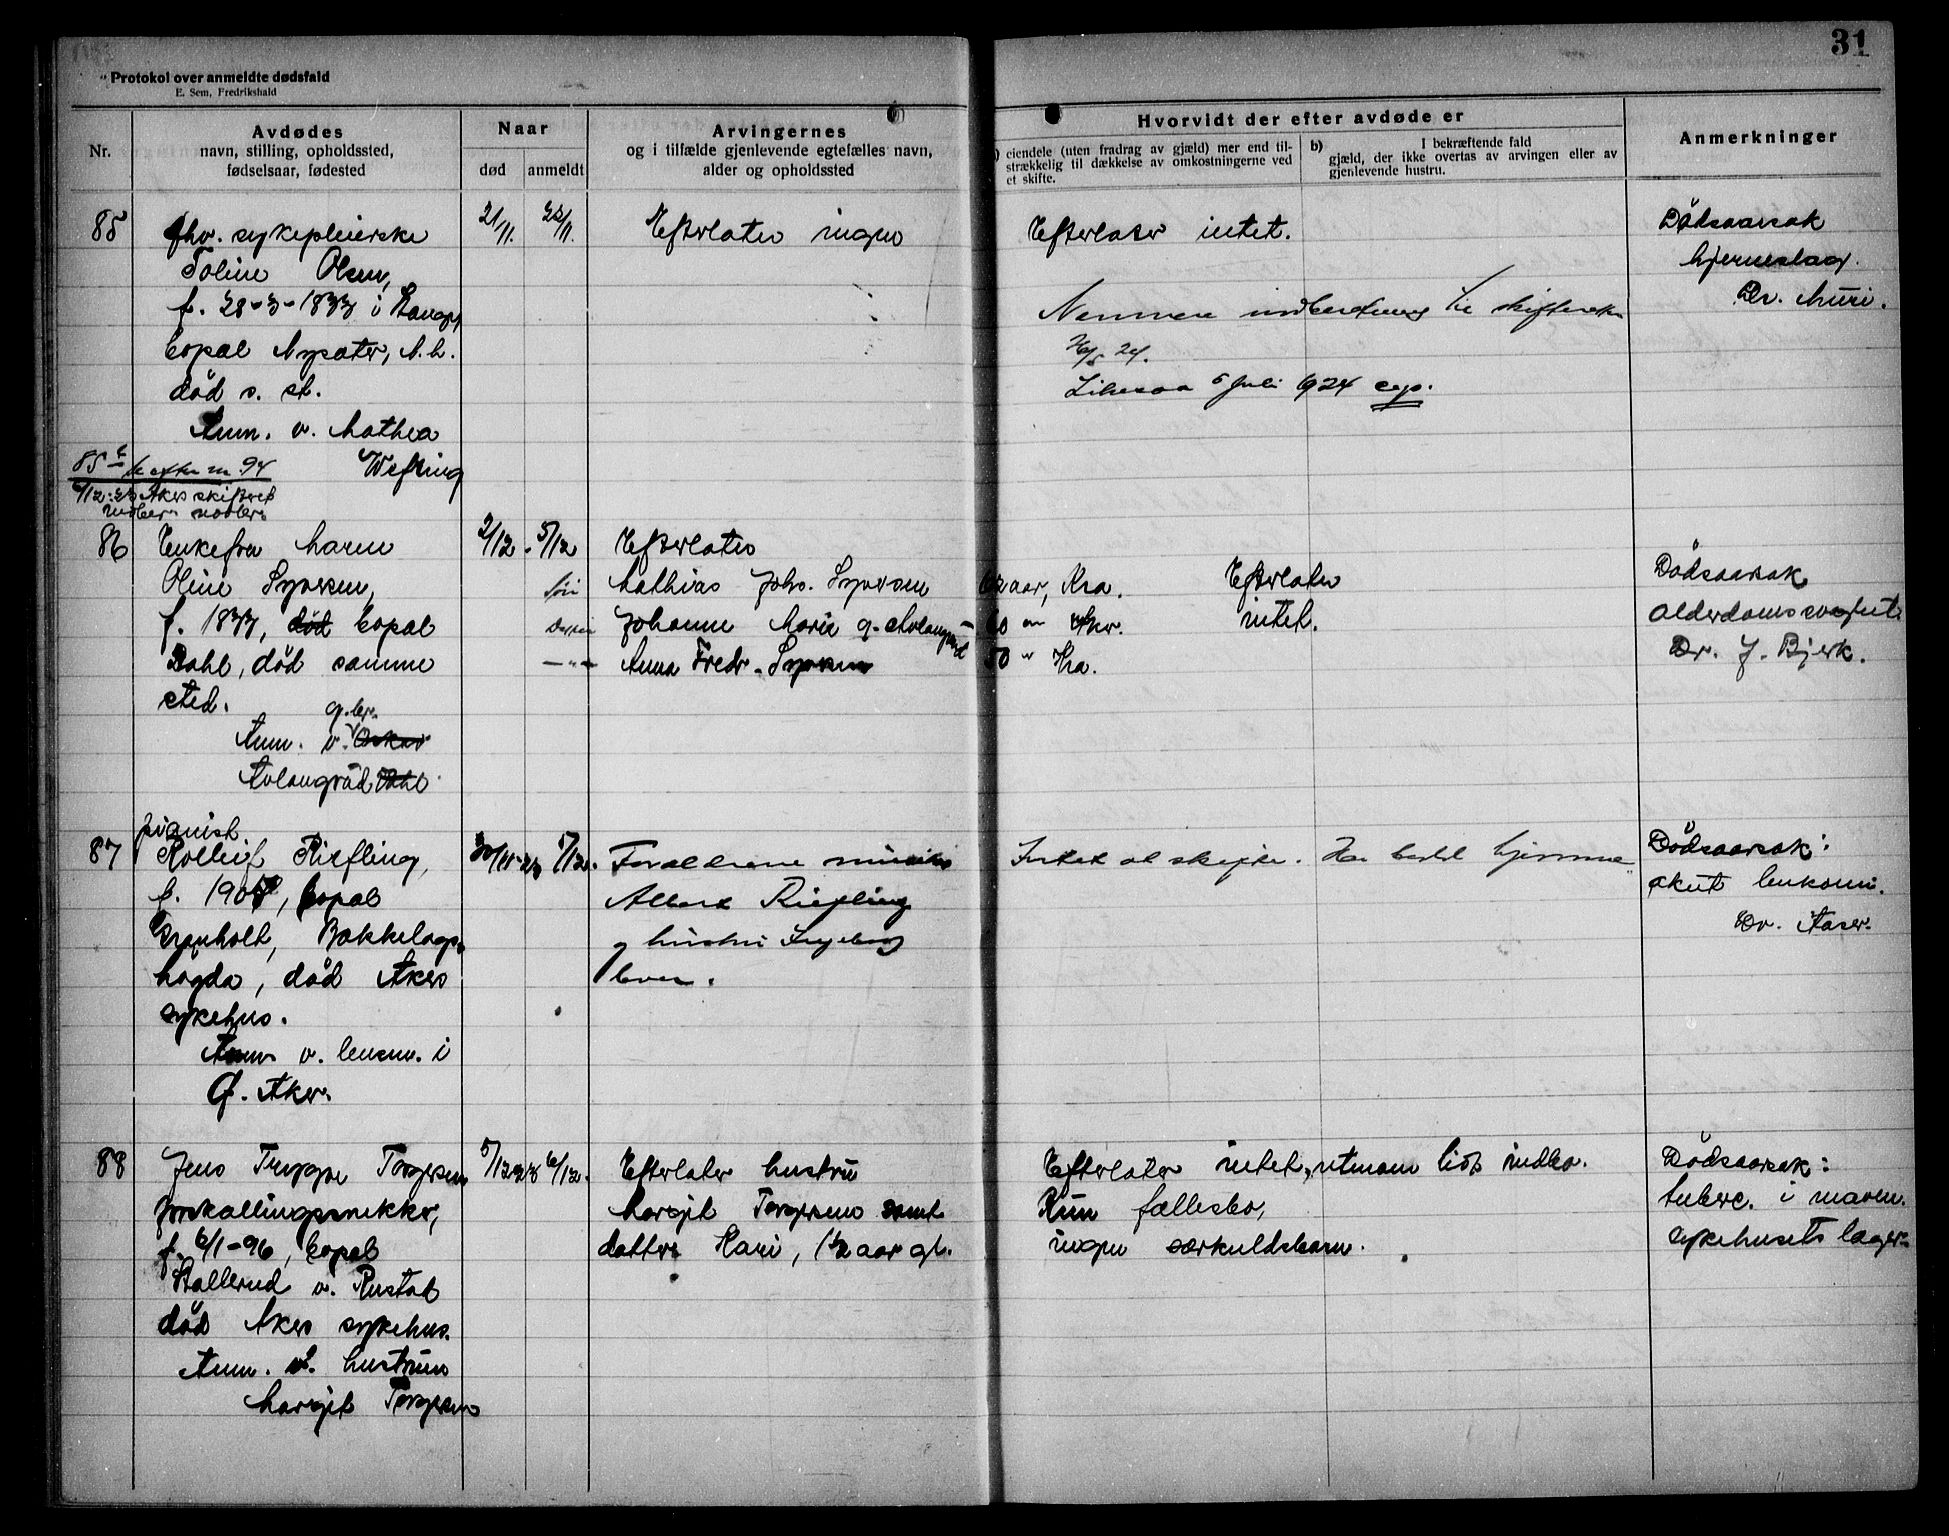 31
Protokol over anmeldte dødsfald
E. Sem, Fredrikshald
Nr.
Avdødes
navn, stilling, opholdssted,
fødselsaar, fødested
Naar
død
anmeldt
Arvingernes
og i tilfælde gjenlevende egtefælles navn,
alder og opholdssted
Hvorvidt der efter avdøde er
eiendele (uten fradrag av gjæld) mer end til-
strækkelig til dækkelse av omkostningerne ved
et skifte.
b) I bekræftende fald
gjæld, der ikke overtas av arvingen eller av
gjenlevende hustru.
Anmerkninger
85
fhv. sykepleierske
Toline Olsen,
f. 28-3-1833 i
bopæl
død s. st.
Anm. v. Mathea
Wefring
21/11.
22/11.
Efterlater ingen
Efterlater intet.
Nærmere indberetning til skifteretten
24.
Likesaa 5 juli 1924
Dødsaarsak
hjerneslag.
Dr. Muri.
85 b se efter nr. 94
6/12-23 Akers skifteret
86
Enkefru Maren
Oline Syversen,
f. 1833, død bopæl
Dahl, død samme
sted.
Anm. v. Oskar
Avlangrud Dahl
2/12.
5/12
Efterlater
søn Mathias Johs. Syversen 62 aar, Kra.
Johanne Marie g. Avlangrud 60 " Aker.
—"— Anna Fredr. Syversen 50 " Kra.
Efterlater
intet.
Dødsaarsak
alderdomssvakhet
Dr. J. Bjerk.
87
pianist
Rolleif Riefling,
f. 190, bopæl
Granholt, Bækkelags-
høgda, død Akers
sykehus.
Anm. v. lensm. i
Ø. Aker.
30/11-23
5/12.
Forældrene musiker
Albert Riefling
og hustru Ingeborg
lever.
Intet at skifte. Har bodd hjemme
Dødsaarsak:
akut leukomi.
Dr. Aaser.
88
Jens Trygge Torgersen
forskallingssnekker,
f. 6/1-96, bopæl
Stallerud v. Rustad
død Akers sykehus.
Anm. av hustruen
Margit Torgersen
5/12-23
6/12.
Efterlater hustru
Margit Torgersen samt
datter Kari, 1½ aar gl.
Efterlater intet, utenom lidt indbo.
Kun fællesbo,
ingen særkuldsbarn.
Dødsaarsak:
tuberc. i maven.
sykehusets læger.